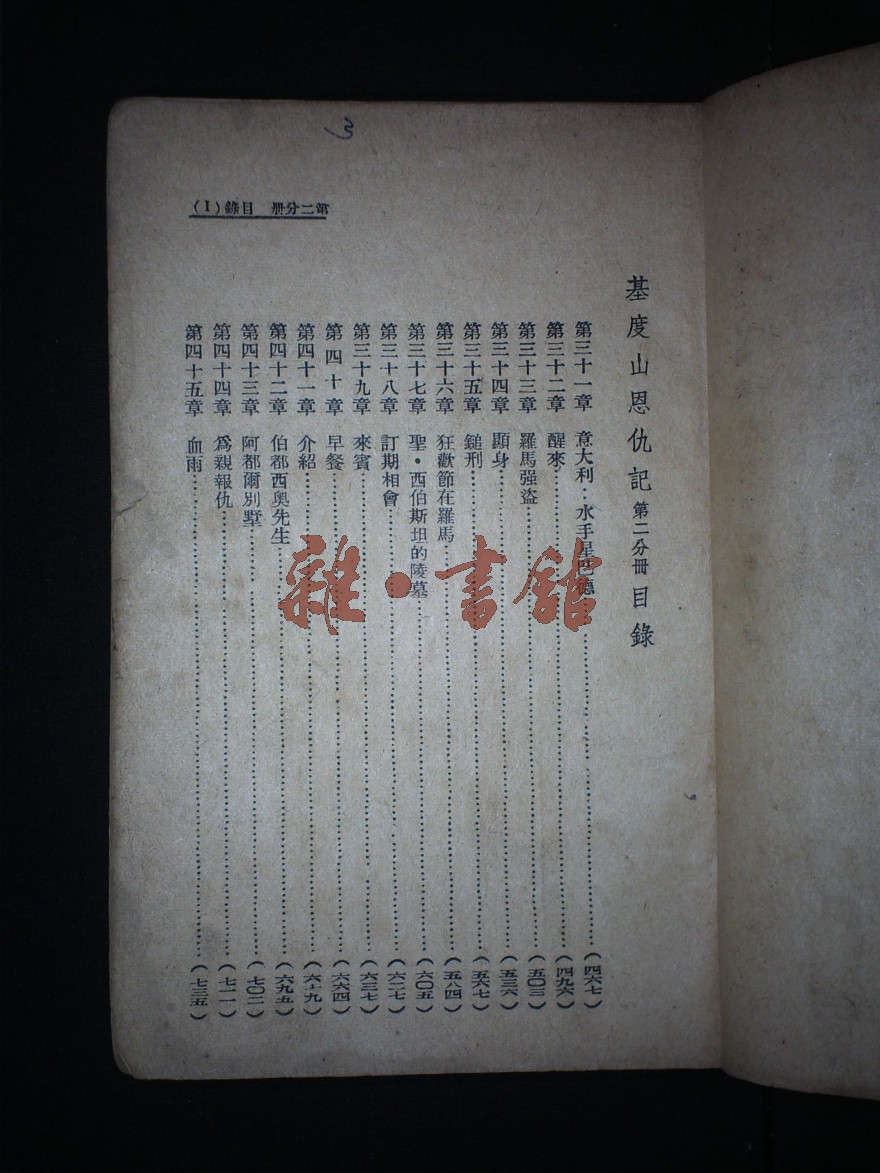 3
第二分册 目錄(1)
基度山恩仇記 第二分冊 目錄
第三十一章 意大利：水手星巴德……(四六七)
第三十二章 醒來……(四九六)
第三十三章 羅馬强盜……(五〇三)
第三十四章 顯身……(五三六)
第三十五章 鎚刑……(五六七)
第三十六章 狂歡節在羅馬……(五八四)
第三十七章 聖·西伯斯坦的陵墓……(六〇五)
第三十八章 訂期相會……(六二七)
第三十九章 來賓……(六三七)
第四十章 早餐……(六六四)
第四十一章 介紹……(六十九)
第四十二章 伯都西奧先生……(六九五)
第四十三章 阿都爾別墅……(七〇二)
第四十四章 爲親報仇……(七一一)
第四十五章 血雨……(七三五)
雜·書館